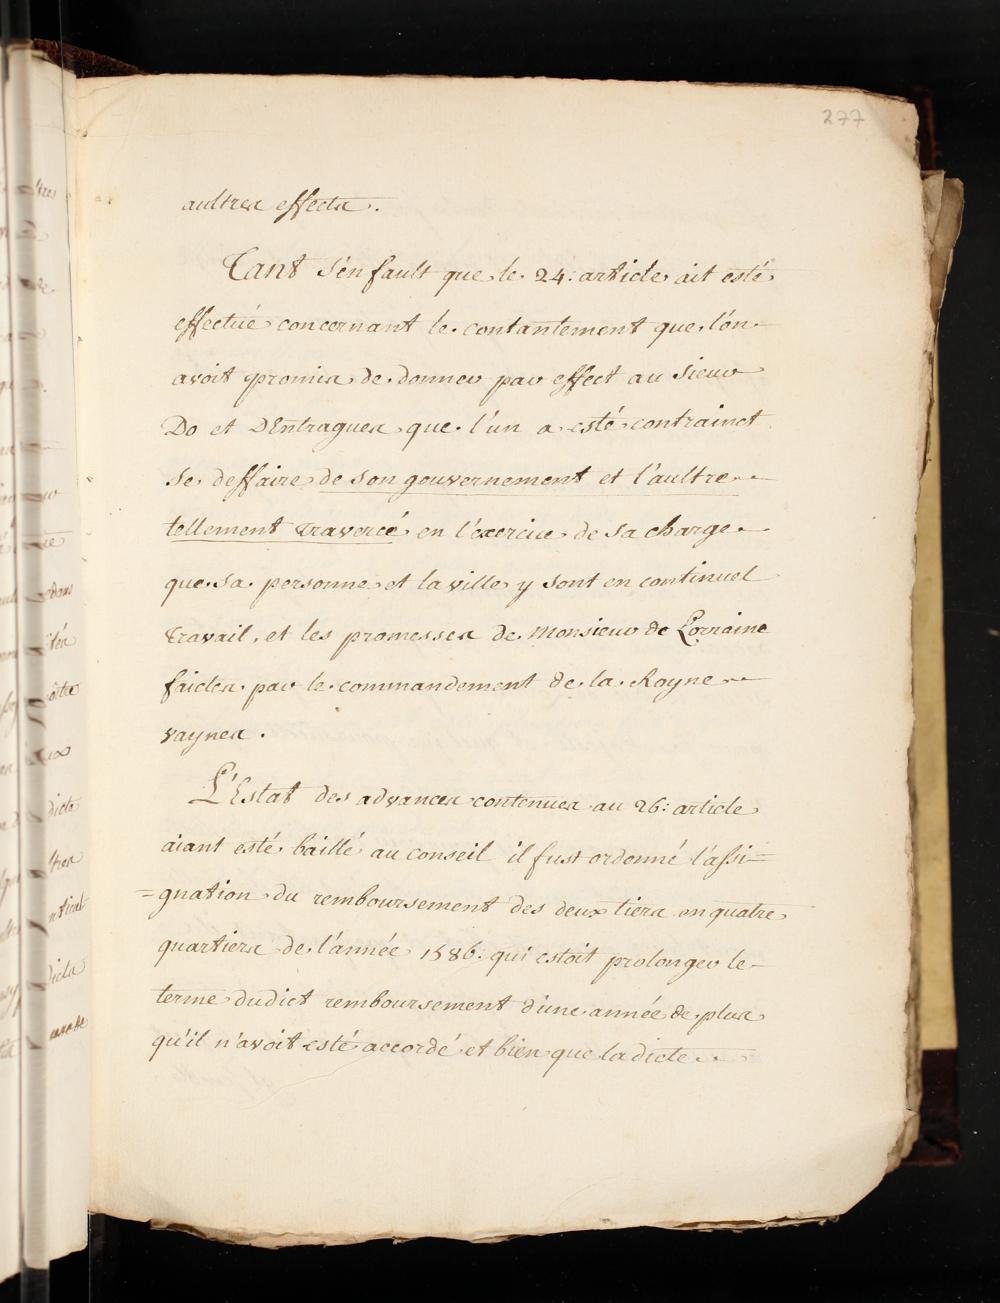 277
aultres effects.
Tant s'en fault que le 24. article ait esté
effectué concernant le contantement que l'on
avoit promis de donner par effect au Sieur
Do et DEntragues que l'un a esté contrainct
se deffaire de son gouvernement et l'aultre
tellement traversé en l'exercice de sa charge
que sa personne et la ville y sont en continuel
travail, et les promesses de Monsieur de Lorraine
faictes par le commandement de la Royne
vaynes.
L'Estat des advances contenues au 26: article
aiant esté baillé au conseil il fust ordonné l'assi=
=gnation du remboursement des deux tiers en quatre
quartiers de l'année 1586. qui estoit prolonger le
terme dudict remboursement d'une année de plus
qu'il n'avoit esté accordé et bien que ladicte